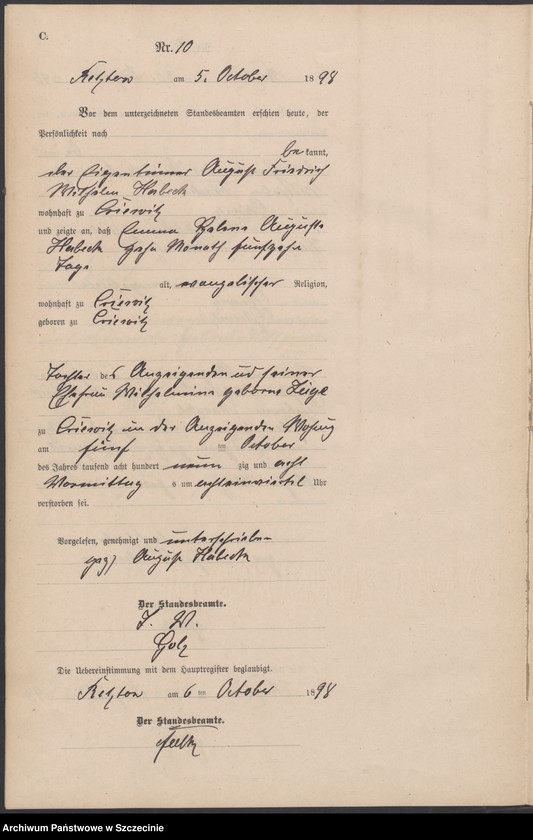 C.
Nr. 10
am 5. October 1898
Vor dem unterzeichneten Standesbeamten erschien heute, der
Persönlichkeit nach
be kannt,
der Eigentümer August Friedrich
Wilhelm Habeck
wohnhaft zu Criewitz
und zeigte an, daß Emma Helene Auguste
Habeck zehn Monath fünfzehn
Tage
alt, evangelischer Religion,
wohnhaft zu Criewitz
geboren zu Criewitz
Tochter des Anzeigenden und seiner
Ehefrau Wilhelmine geborne
zu Criewitz in der Anzeigenden Wohnung
am fünf ten October
des Jahres tausend acht hundert neun zig und acht
Vormittag s um achteinviertel Uhr
verstorben sei.
Vorgelesen, genehmigt und unterschrieben
gez) August Habeck
Der Standesbeamte.
I. V.
Golz
Die Uebereinstimmung mit dem Hauptregister beglaubigt.
am 6 ten October 1898
Der Standesbeamte.
Archiwum Państwowe w Szczecinie